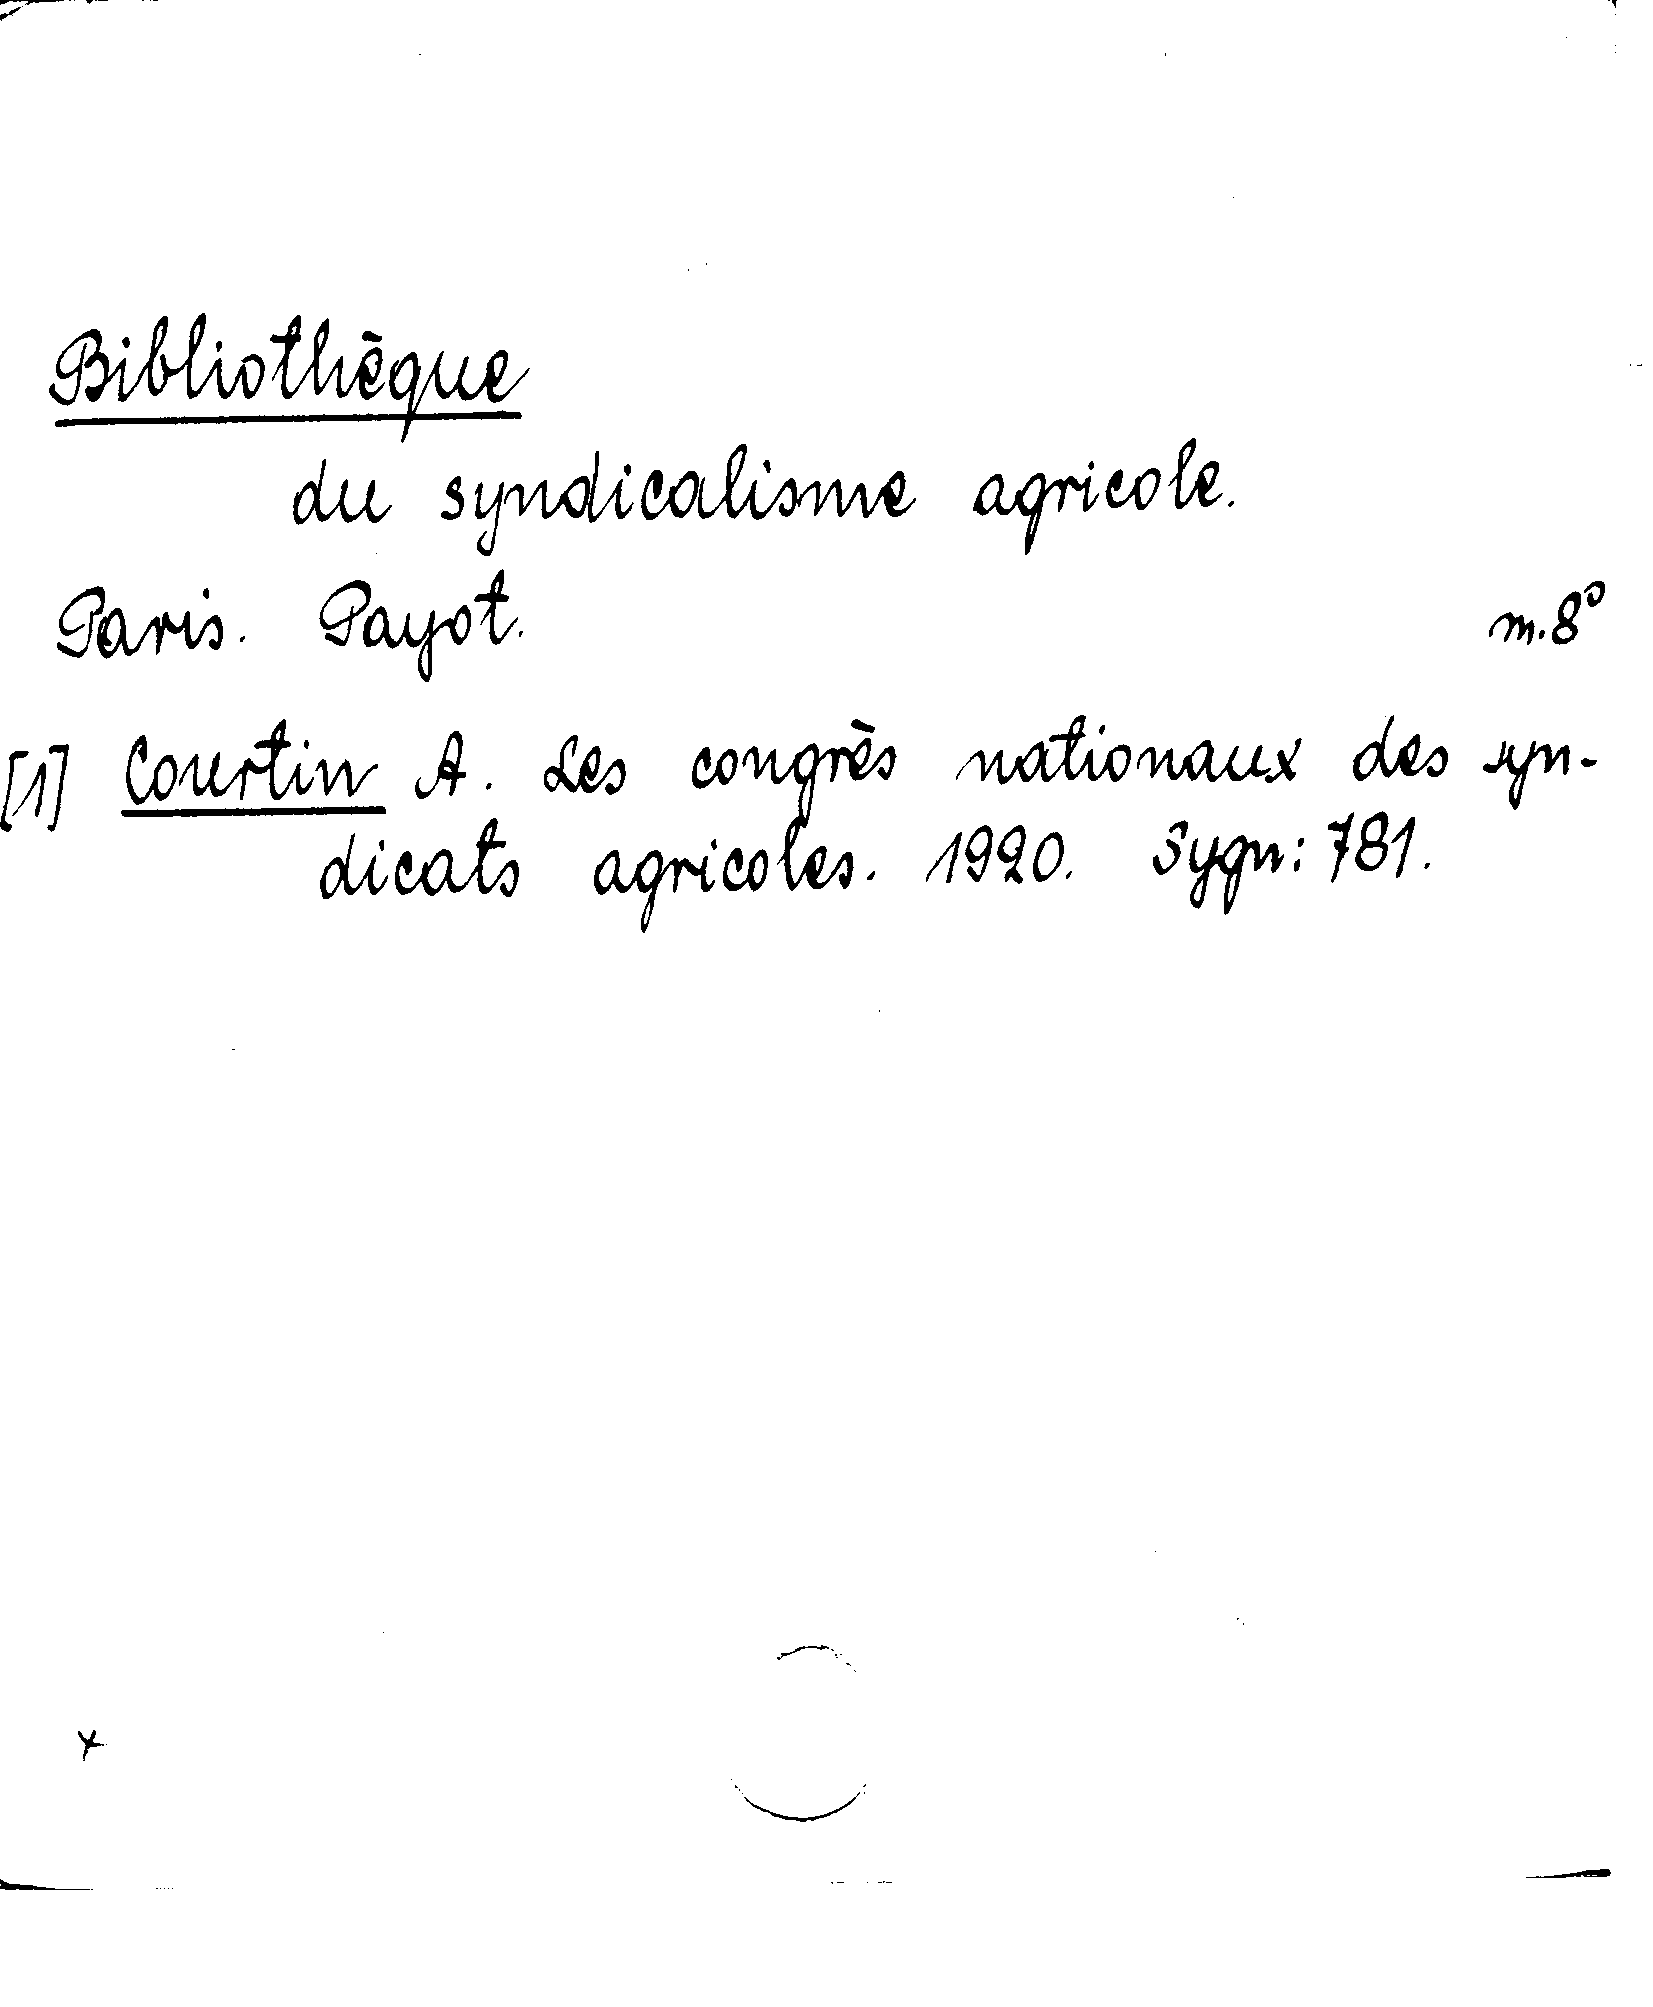 Bibliothèque
du syndicalisme agricole.
Paris. Payot. m.8°
[1] Courtin A. Les congrès nationaux des syn-
dicats agricoles. 1920. Sygn: 781.
x